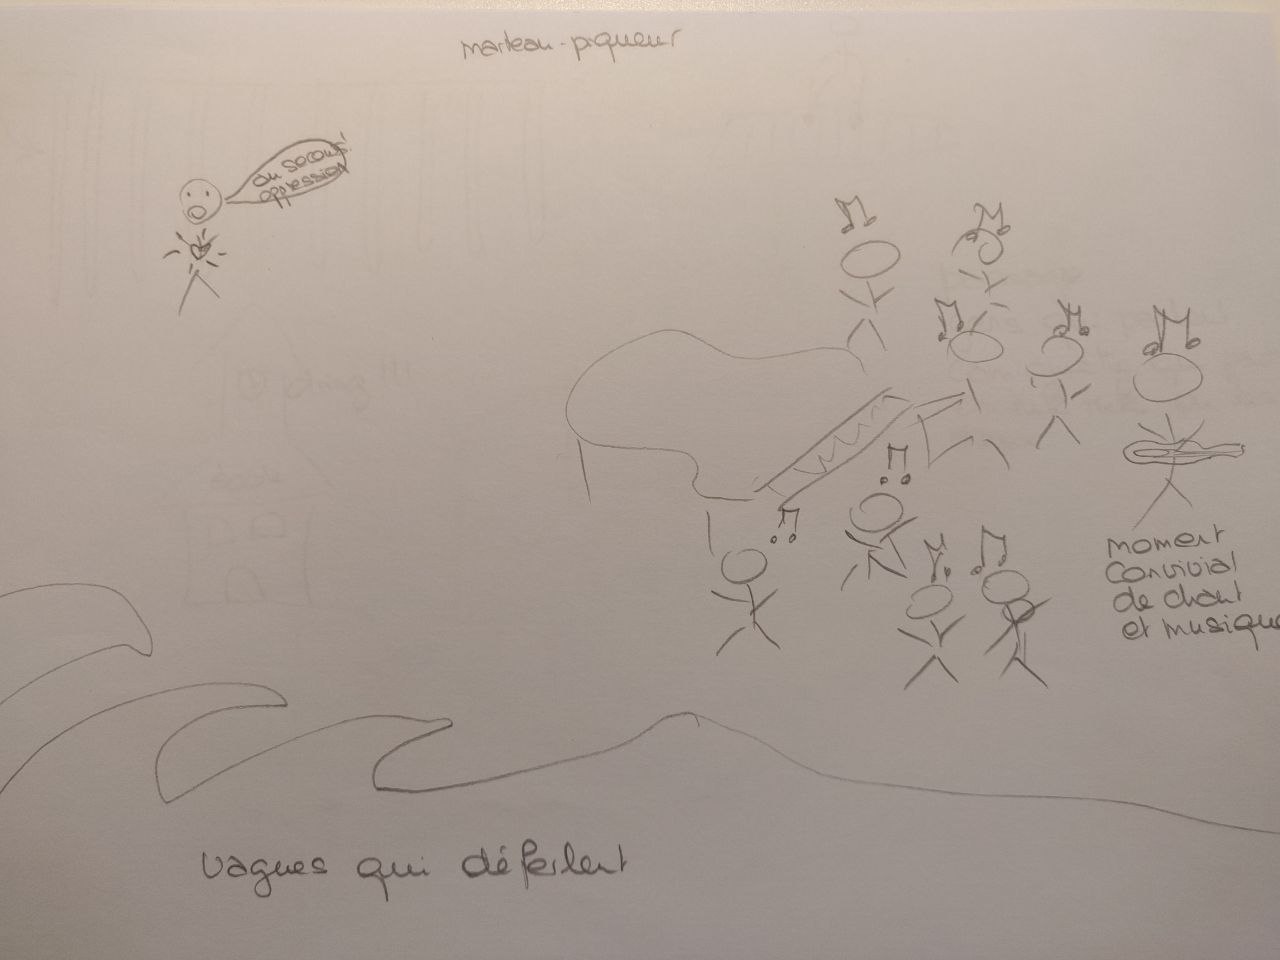 marteau-piqueur
au secours!
oppression
moment
convivial
de chant
et musique
vagues qui déferlent